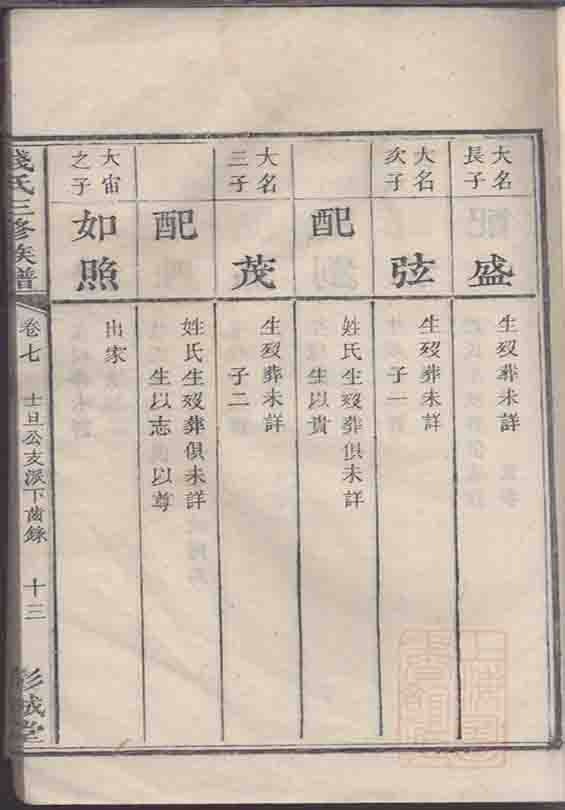 大名
長子
盛
生歿葬未詳
大名
次子
弦
生歿葬未詳
子一
配
姓氏生歿葬俱未詳
生以貴
大名
三子
茂
生歿葬未詳
子二
配
姓氏生歿葬俱未詳
生以志 以尊
大宙
之子
如照
出家
錢氏三修族譜
卷七
士旦公支派下齒錄
十三
彭城堂